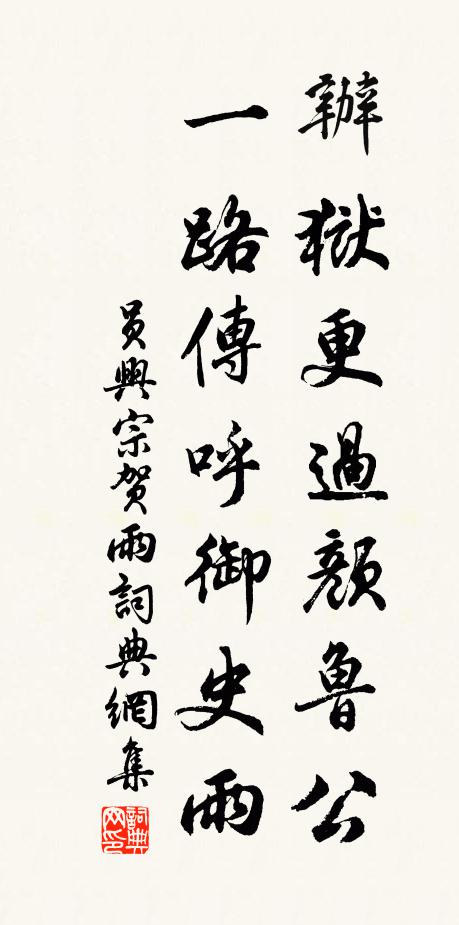 辦獄更過顏魯公
一路傳呼御史雨
員興宗賀雨詞典網集
詞典
网印